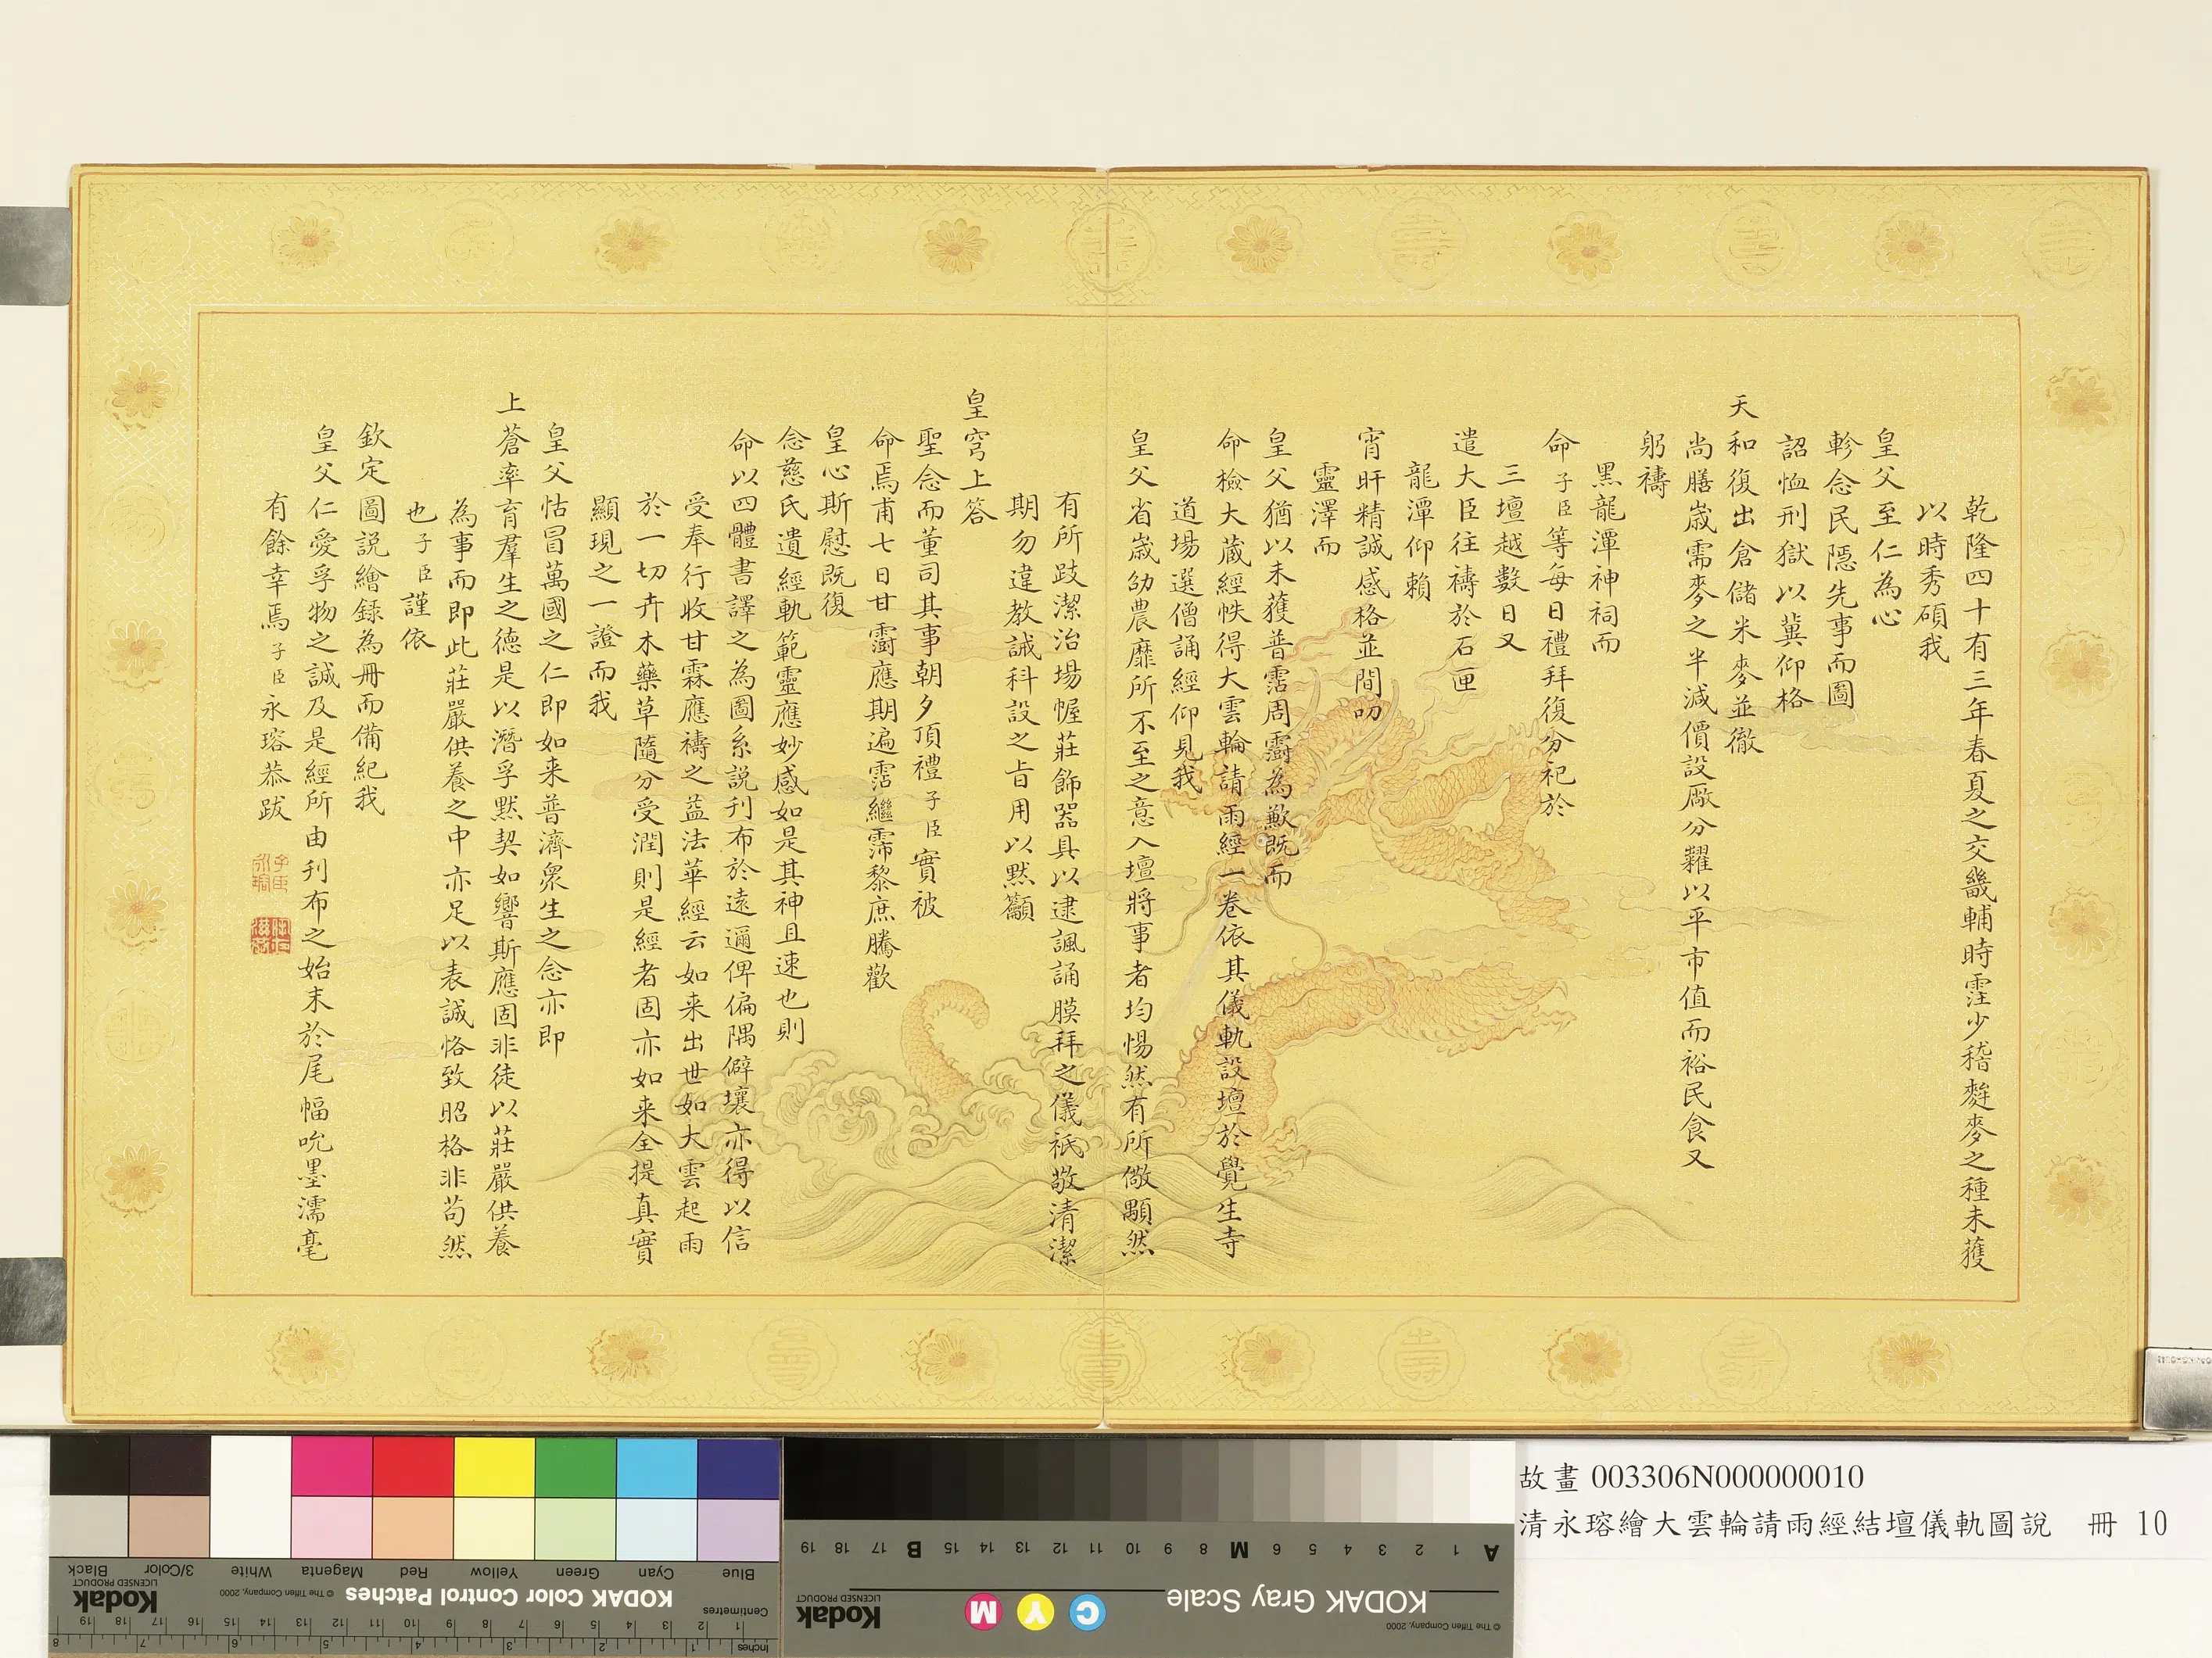 乾隆四十有三年春夏之交畿輔時霔少稽麰麥之種未獲
以時秀碩我
皇父至仁為心
軫念民隱先事而圖
詔恤刑獄以冀仰格
天和復出倉儲米麥並徹
尚膳歲需麥之半減價設廠分糶以平市值而裕民食又
躬禱
黑龍潭神祠而
命子臣等每日禮拜復分祀於
三壇越數日又
遣大臣往禱於石匣
龍潭仰賴
宵旰精誠感格並間叨
靈澤而
皇父猶以未獲普霑周霨為歉既而
命檢大藏經帙得大雲輪請雨經一卷依其儀軌設壇於覺生寺
道場選僧誦經仰見我
皇父省歲劭農靡所不至之意入壇將事者均惕然有所儆顒然
有所跂潔治場幄莊飾器具以逮諷誦膜拜之儀祇敬清潔
期勿違教誡科設之旨用以默籲
皇穹上答
聖念而董司其事朝夕頂禮子臣實被
命焉甫七日甘霨應期遍霑繼霈黎庶騰歡
皇心斯慰既復
念慈氏遺經軌範靈應妙感如是其神且速也則
命以四體書譯之為圖系說刊布於遠邇俾偏隅僻壤亦得以信
受奉行收甘霖應禱之益法華經云如来出世如大雲起雨
於一切卉木藥草隨分受潤則是經者固亦如来全提真實
顯現之一證而我
皇父怙冒萬國之仁即如来普濟眾生之念亦即
上蒼率育羣生之德是以潛孚默契如響斯應固非徒以莊嚴供養
為事而即此莊嚴供養之中亦足以表誠恪致昭格非苟然
也子臣謹依
欽定圖說繪錄為冊而備紀我
皇父仁愛孚物之誠及是經所由刊布之始末於尾幅吮墨濡毫
有餘幸焉子臣永瑢恭跋
子臣永瑢
故畫 003306N000000010
清永瑢繪大雲輪請雨經結壇儀軌圖說 冊 10
Blue Cyan Green Yellow Red Magenta White 3/Color Black
KODAK Color Control Patches
© The Tiffen Company, 2000
Kodak
LICENSED PRODUCT
Centimetres
Inches
KODAK Gray Scale
C Y M
Kodak
LICENSED PRODUCT
© The Tiffen Company, 2000
A 1 2 3 4 5 6 M 8 9 10 11 12 13 14 15 B 17 18 19